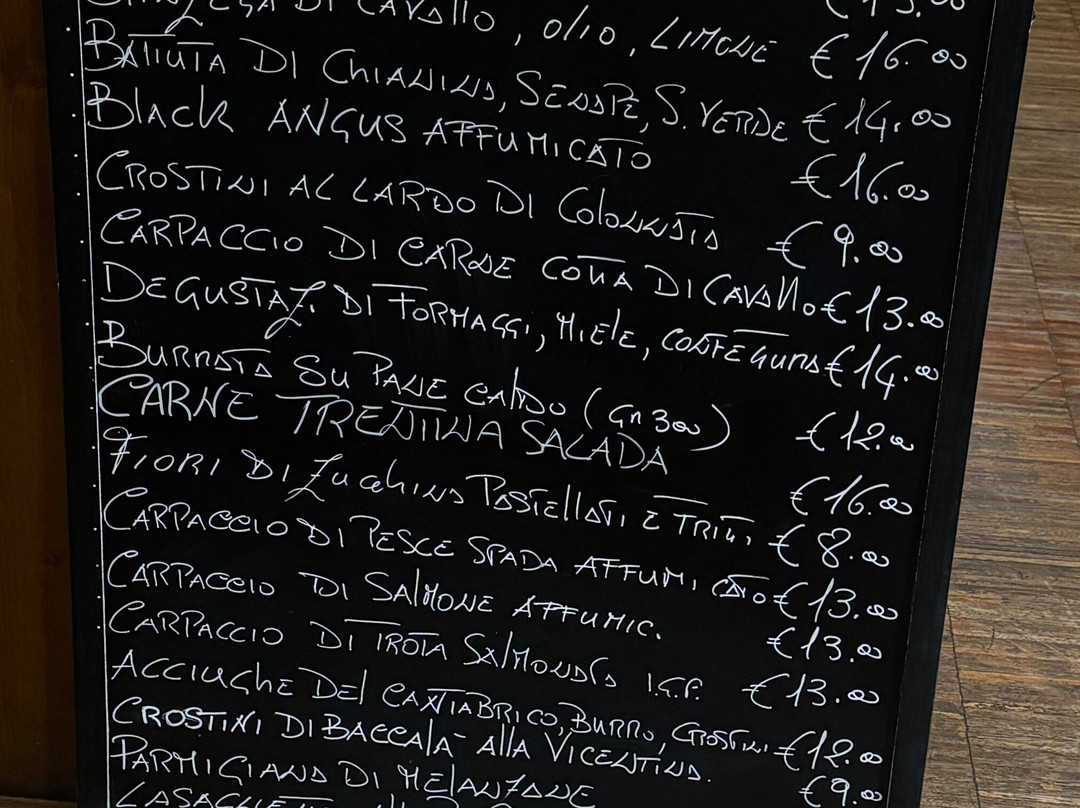 DI CAVALLO, OLIO, LIMONE € 16.00
BATTUTA DI CHIANINA, SENAPE, S. VERDE € 14.00
BLACK ANGUS AFFUMICATO € 16.00
CROSTINI AL LARDO DI COLONNATA € 9.00
CARPACCIO DI CARNE COTTA DI CAVALLO € 13.00
DEGUSTAZ. DI FORMAGGI, MIELE, CONFETTURA € 14.00
BURRATA SU PANE CALDO (Gr 300) € 12.00
CARNE TRENTINA SALADA € 16.00
FIORI DI ZUCCHINA PASTELLATI E FRITTI € 8.00
CARPACCIO DI PESCE SPADA AFFUMICATO € 13.00
CARPACCIO DI SALMONE AFFUMIC. € 13.00
CARPACCIO DI TROTA SALMONATA I.G.P. € 13.00
ACCIUGHE DEL CANTABRICO, BURRO, CROSTINI € 12.00
CROSTINI DI BACCALÀ ALLA VICENTINA. € 9.00
PARMIGIANA DI MELANZANE